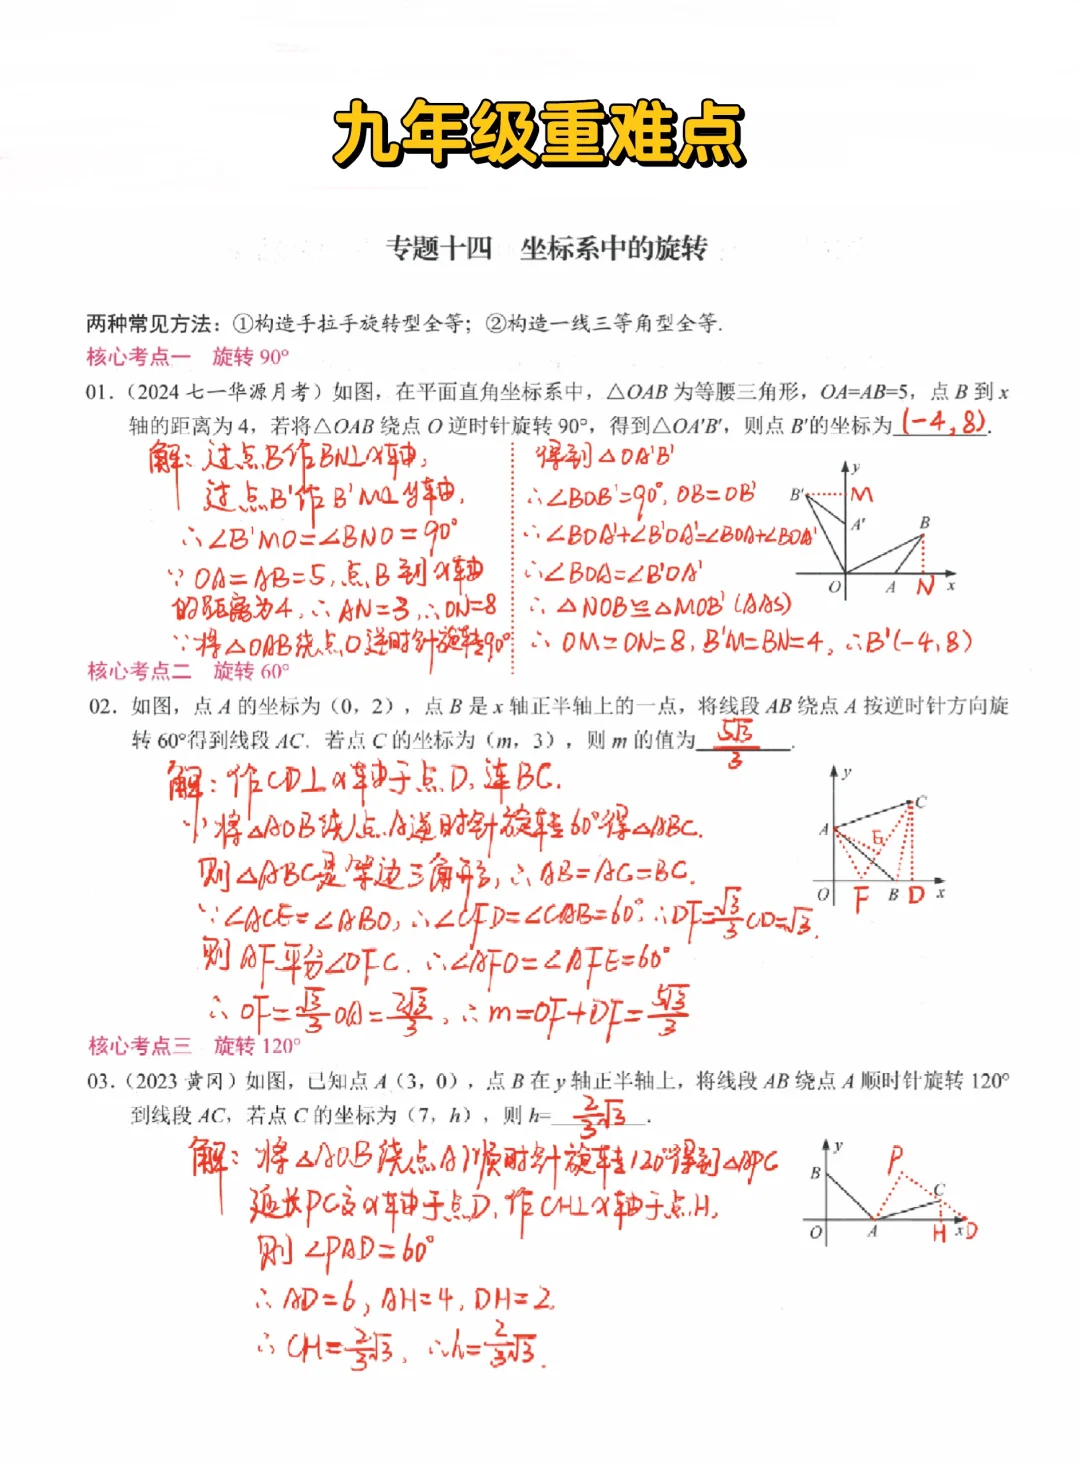 九年级重难点
专题十四 坐标系中的旋转
两种常见方法：①构造手拉手旋转型全等；②构造一线三等角型全等.
核心考点一 旋转 90°
01.（2024 七一华源月考）如图，在平面直角坐标系中，△OAB 为等腰三角形，OA=AB=5，点 B 到 x
轴的距离为 4，若将△OAB 绕点 O 逆时针旋转 90°，得到△OA'B'，则点 B'的坐标为 (-4,8).
解：过点B作BN⊥x轴，
过点B'作B'M⊥y轴，
∴∠B'MO=∠BNO=90°
∵OA=AB=5，点B到x轴
的距离为4，∴AN=3，∴ON=8
∵将△OAB绕点O逆时针旋转90°
得到△OA'B'
∴∠BOB'=90°，OB=OB'
∴∠BOA'+∠B'OA'=∠BOA+∠BOA'
∴∠BOA=∠B'OA'
∴△NOB≌△MOB'(AAS)
∴OM=ON=8，B'M=BN=4，∴B'(-4,8)
y
B' M
A' B
O A N x
核心考点二 旋转 60°
02. 如图，点 A 的坐标为（0，2），点 B 是 x 轴正半轴上的一点，将线段 AB 绕点 A 按逆时针方向旋
转 60°得到线段 AC．若点 C 的坐标为（m，3），则 m 的值为 5√3/3 .
解：作CD⊥x轴于点D，连BC.
将△AOB绕点A逆时针旋转60°得△ABC.
则△ABC是等边三角形，∴AB=AC=BC.
∵∠ACE=∠ABO，∴∠CFD=∠CAB=60°∴DF=√3/3CD=√3.
则AF平分∠OFC．∴∠AFO=∠AFE=60°
∴OF=√3/3OA=2√3/3，∴m=OF+DF=5√3/3
y
C
A E
O F B D x
核心考点三 旋转 120°
03.（2023 黄冈）如图，已知点 A（3，0），点 B 在 y 轴正半轴上，将线段 AB 绕点 A 顺时针旋转 120°
到线段 AC，若点 C 的坐标为（7，h），则 h= 2/3√3 .
解：将△AOB绕点A顺时针旋转120°得到△APC
延长PC交x轴于点D，作CH⊥x轴于点H，
则∠PAD=60°
∴AD=6，AH=4，DH=2
∴CH=2/3√3，∴h=2/3√3.
y
B P
C
O A H x D